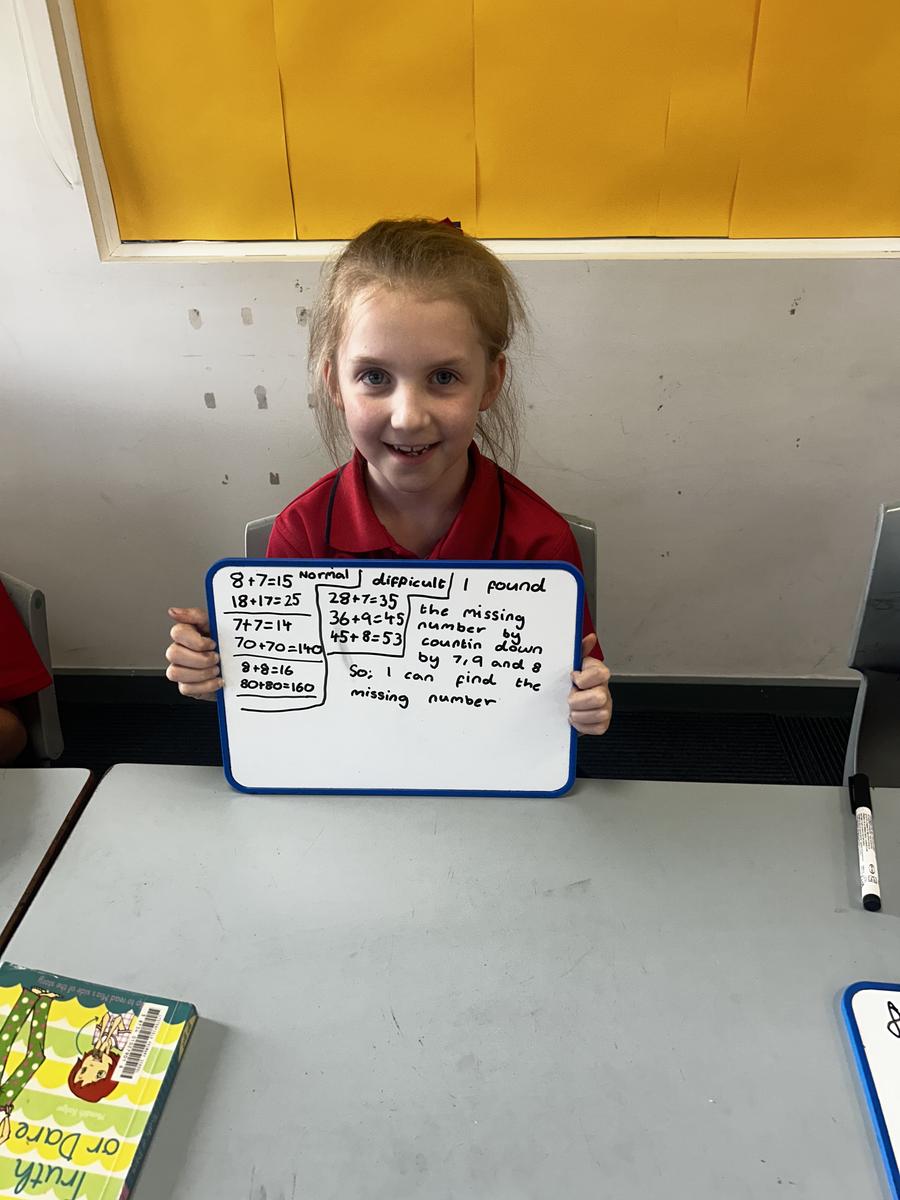 8+7=15 Normal
18+17=25
7+7=14
70+70=140
8+8=16
80+80=160
difficult
28+7=35
36+9=45
45+8=53
I found
the missing
number by
countin down
by 7,9 and 8
So; I can find the
missing number
up to read Mia's side of the story
Truth
or Dare